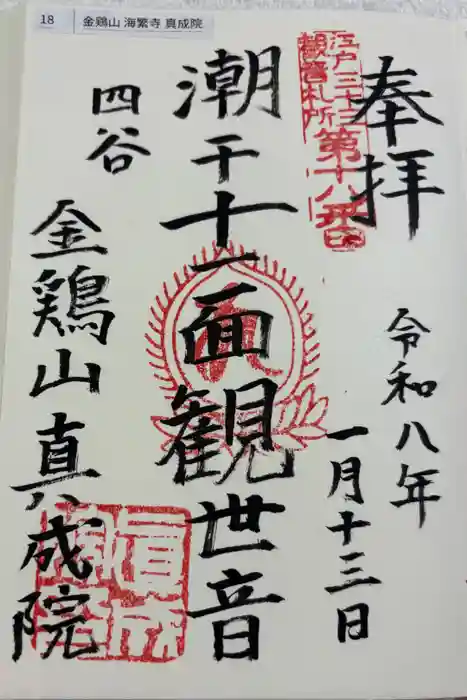 18 金鶏山 海繁寺 真成院
奉拝
江戸三十三
観音札所
第十八番
令和八年
一月十三日
潮干十一面観世音
四谷
金鶏山 真成院